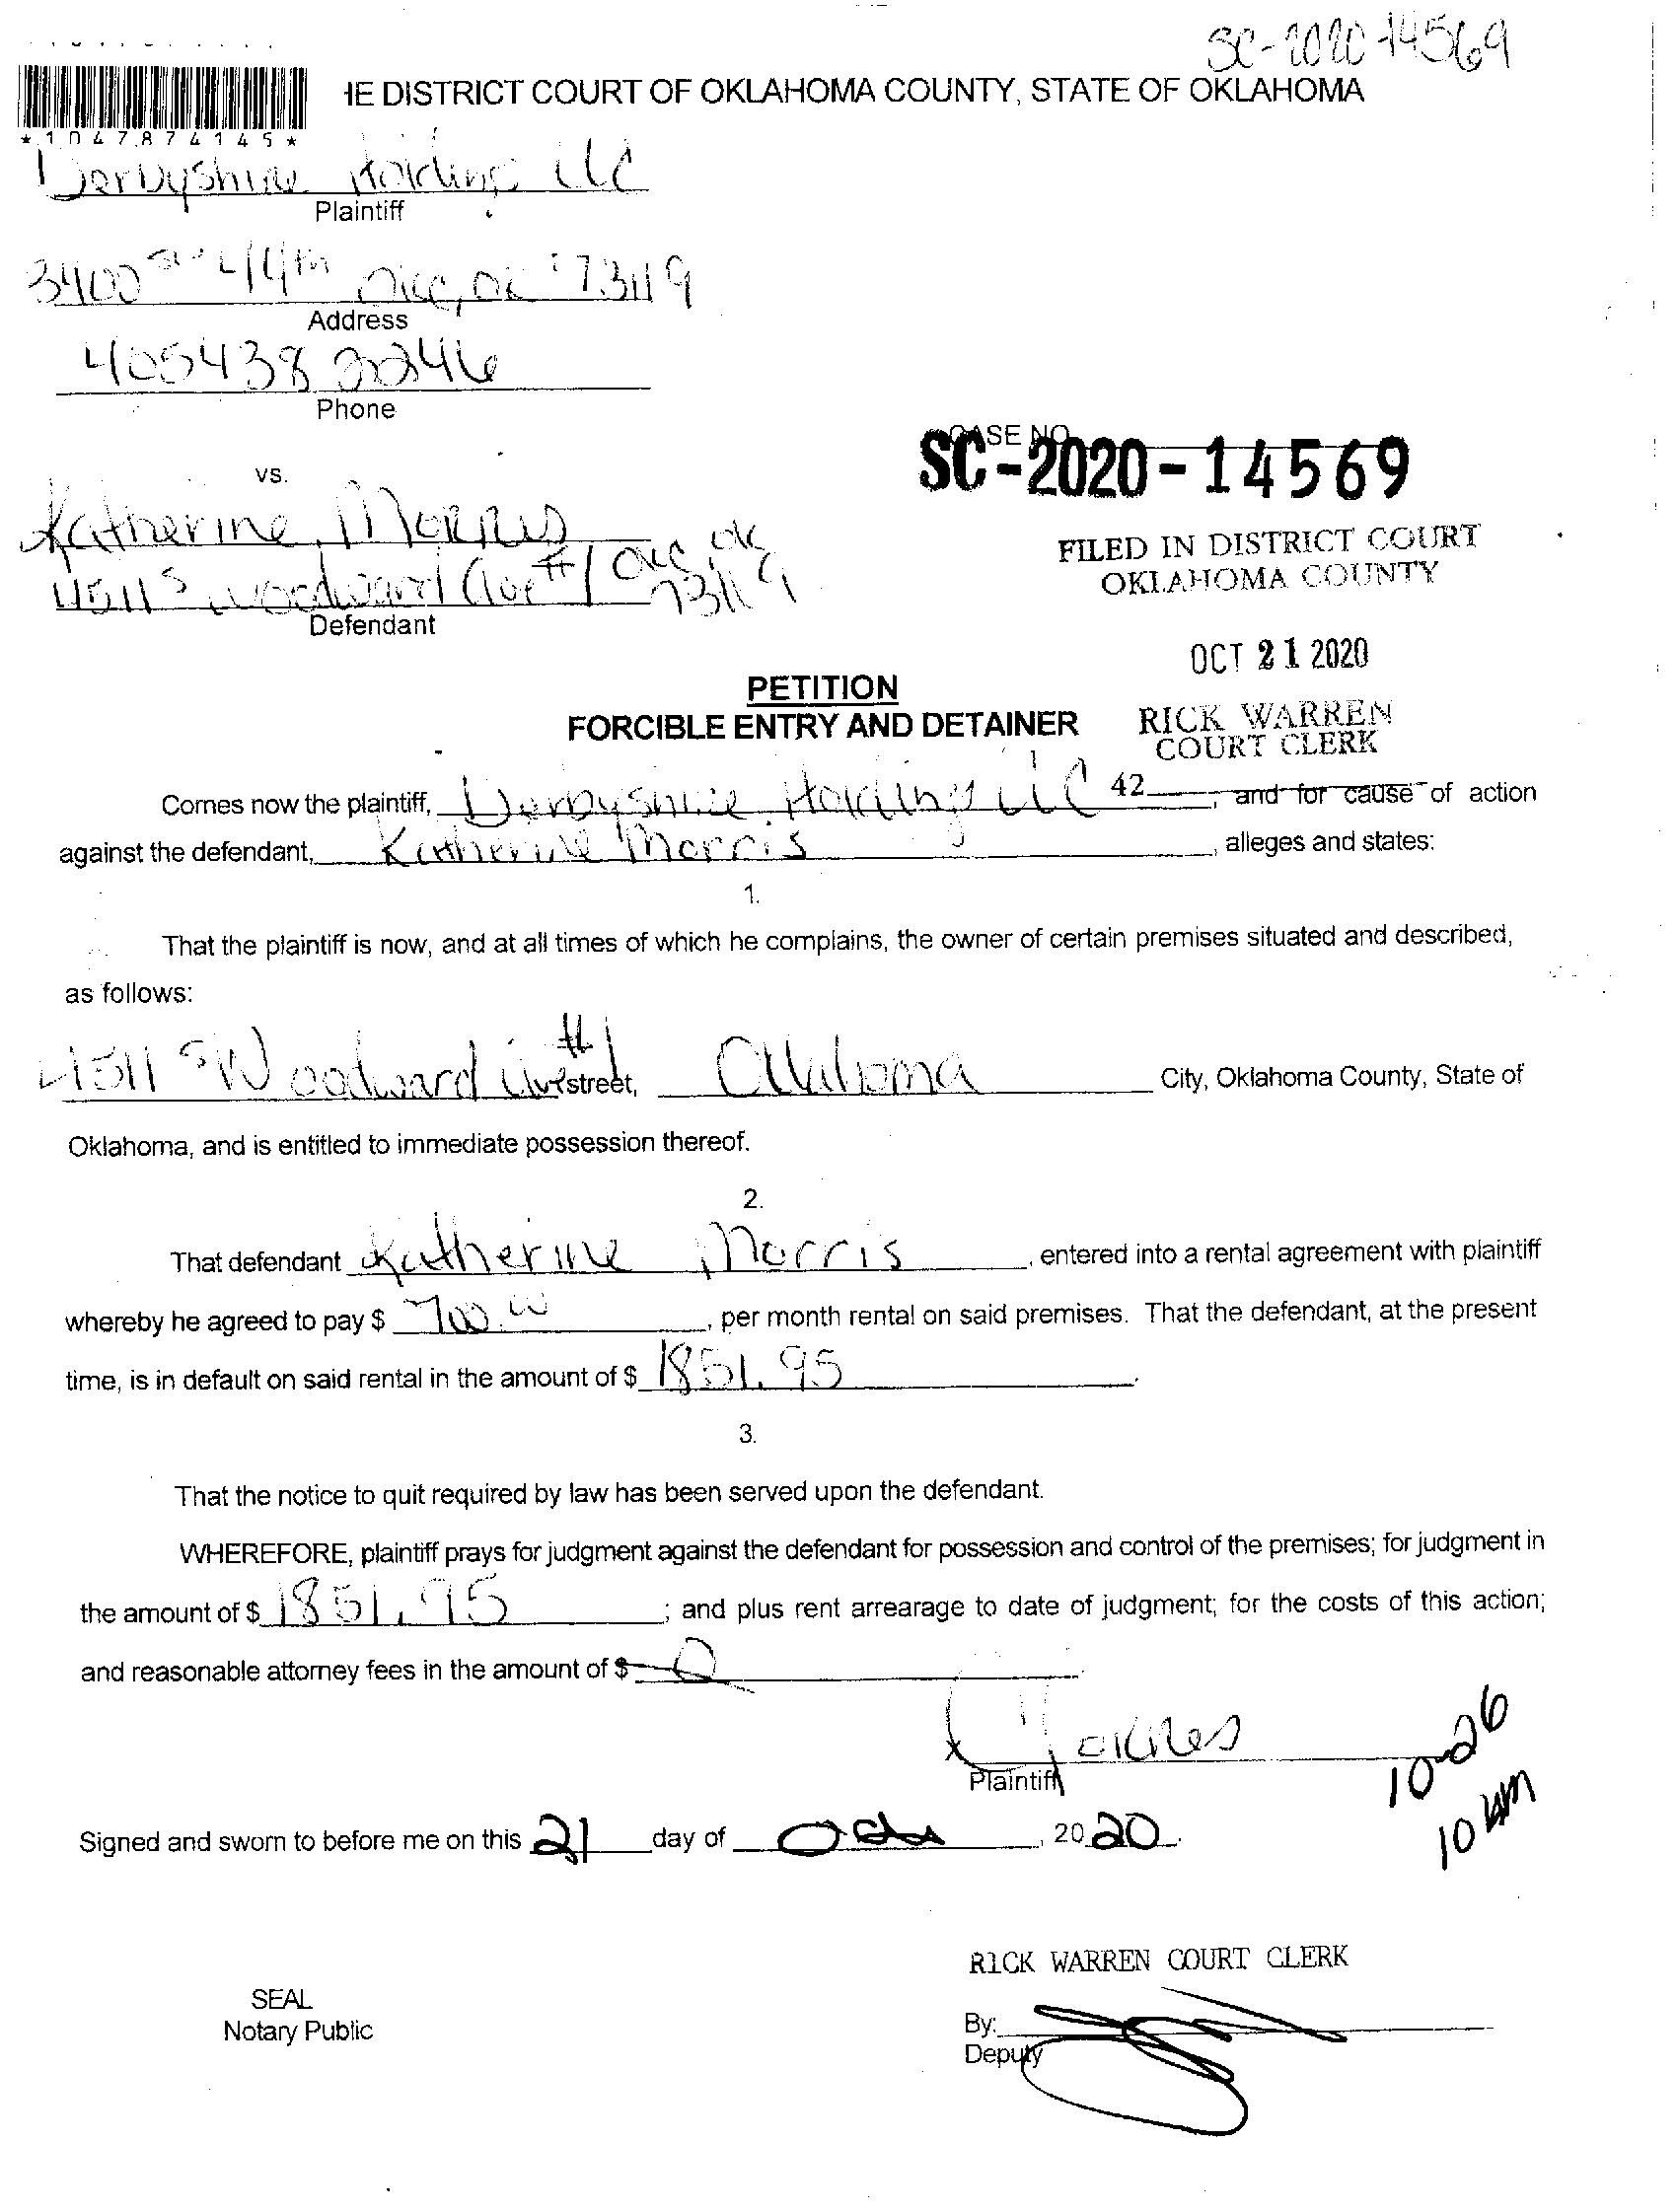 SC-2020-14569
IE DISTRICT COURT OF OKLAHOMA COUNTY, STATE OF OKLAHOMA
*1047874145*
Derbyshire Holdings LLC
Plaintiff
3400 SW 44th OKC, OK 73119
Address
405438 2246
Phone
CASE NO.
SC-2020-14569
vs.
Katherine Morris
4511 S Woodward Ave #1 OKC, OK 73119
Defendant
FILED IN DISTRICT COURT
OKLAHOMA COUNTY
OCT 21 2020
RICK WARREN
COURT CLERK
42
PETITION
FORCIBLE ENTRY AND DETAINER
Comes now the plaintiff, Derbyshire Holdings LLC, and for cause of action
against the defendant, Katherine Morris, alleges and states:
1.
That the plaintiff is now, and at all times of which he complains, the owner of certain premises situated and described,
as follows:
4511 S Woodward Ave #1 street, City, Oklahoma County, State of
Oklahoma, and is entitled to immediate possession thereof.
2.
That defendant Katherine Morris, entered into a rental agreement with plaintiff
whereby he agreed to pay $ 700.00, per month rental on said premises. That the defendant, at the present
time, is in default on said rental in the amount of $ 1851.95.
3.
That the notice to quit required by law has been served upon the defendant.
WHEREFORE, plaintiff prays for judgment against the defendant for possession and control of the premises; for judgment in
the amount of $ 1851.95; and plus rent arrearage to date of judgment; for the costs of this action;
and reasonable attorney fees in the amount of $ 0.
x
Plaintiff
10-26
10 AM
Signed and sworn to before me on this 21 day of, 2020.
RICK WARREN COURT CLERK
SEAL
Notary Public
By:
Deputy